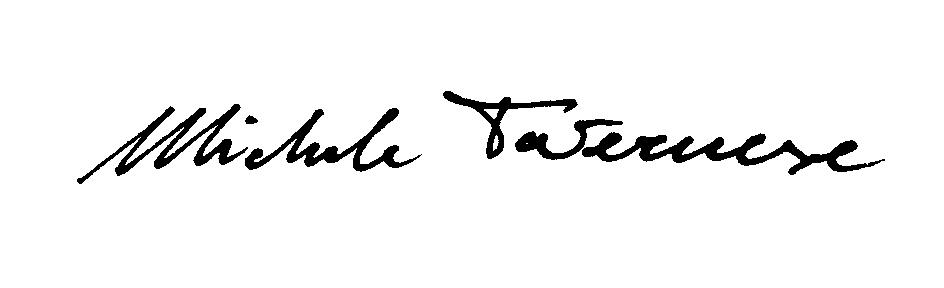 Michele Tavernese